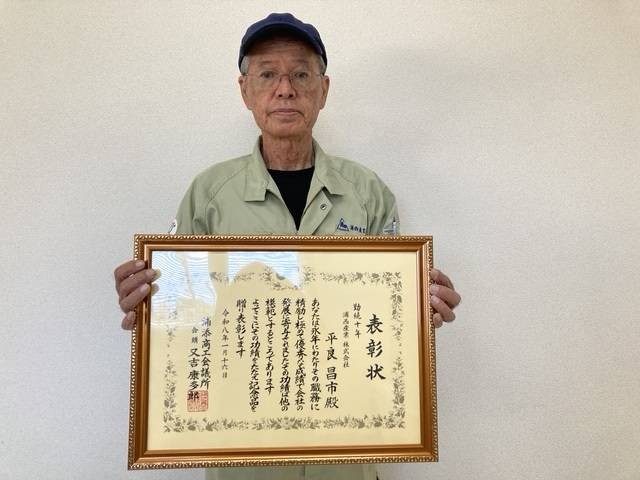 表彰状
勤続十年
浦西産業 株式会社
平良 昌市殿
あなたは永年にわたりその職務に
精励し極めて優秀な成績で会社の
発展に寄与されましたその功績は他の
模範とするところであります
よってここにその功績をたたえ記念品を
贈り表彰します
令和八年一月十六日
浦添商工会議所
会頭 又吉 康多郎